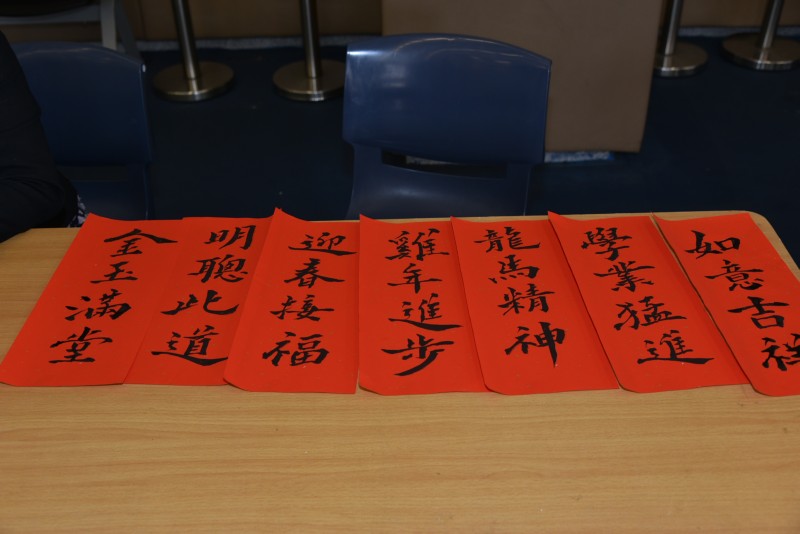 金玉滿堂
明聰此道
迎春接福
雞年進步
龍馬精神
學業猛進
如意吉祥